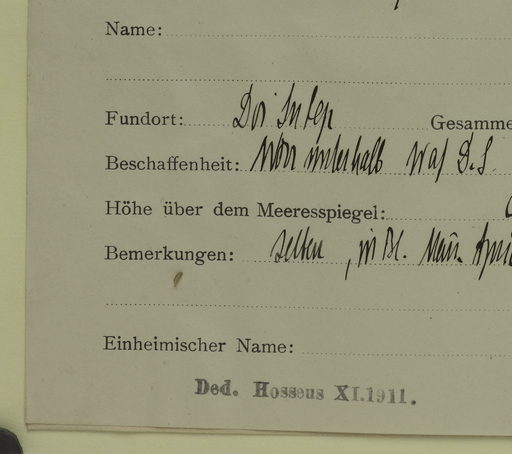 Name:
Fundort: Doi Sutep Gesamme
Beschaffenheit: unterhalb Wat D. S.
Höhe über dem Meeresspiegel:
Bemerkungen: selten, in Bl.
Einheimischer Name:
Ded. Hosseus XI.1911.